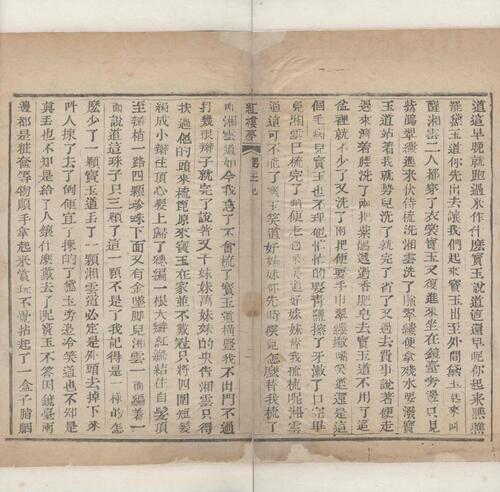 道這早晚就跑過來作什麽寶玉說道這還早呢起來瞧瞧
罷黛玉道你先出去讓我們起來寶玉出至外間黛玉起來叫
醒湘雲二人都穿了衣裳寶玉又復進來坐在鏡臺旁邊只見
紫鵑翠縷進來伏侍梳洗湘雲洗了臉翠縷便拿殘水要潑寶
玉道站着我就勢兒洗了就完了省了又過去費事說著便走
過來灣著腰洗了兩把紫鵑遞過香肥皂去寶玉道不用了這
盆裡就不少了又洗了兩把便要手巾翠縷撇嘴笑道還是這
個毛病兒寶玉也不理他忙忙的要青鹽擦了牙漱了口完畢
見湘雲已梳完了頭便走過來笑道好妹妹替我梳梳呢湘雲
道這可不能了寶玉笑道好妹妹你先時候兒怎麽替我梳了
紅樓夢 第
呢湘雲道如今我忘了不會梳了寶玉道橫豎我不出門不過
打幾根辮子就完了說著又千妹妹萬妹妹的央告湘雲只得
扶過他的頭來梳篦原來寶玉在家並不戴冠只將四圍短髮
編成小辮往頂心髮上歸了總編一根大辮紅縧結住自髮頂
至辮梢一路四顆珍珠下面又有金墜腳兒湘雲一面編着一
面說道這珠子只三顆了這一顆不是了我記得是一樣的怎
麽少了一顆寶玉道丟了一顆湘雲道必定是外頭去掉下來
叫人揀了去了倒便宜了揀的了黛玉旁邊冷笑道也不知是
真丟也不知是給了人鑲什麽戴去了呢寶玉不答因鏡臺兩
邊都是妝奩等物順手拿起來賞玩不覺拈起了一盒子胭脂